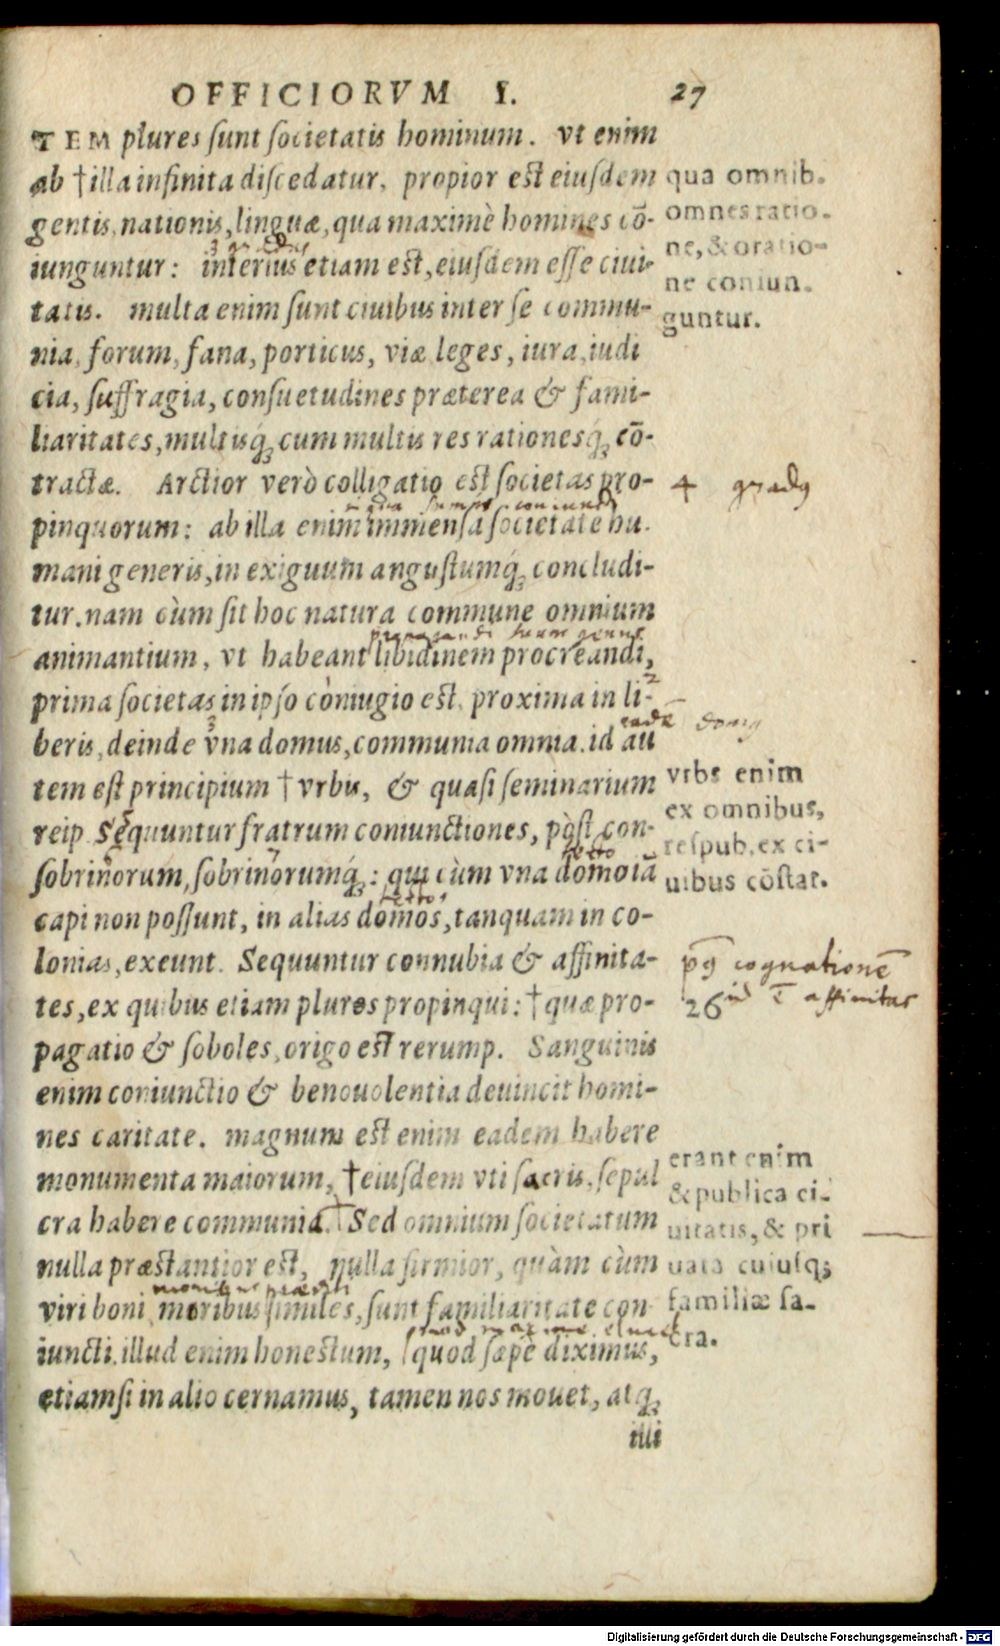 OFFICIORVM I. 27
ITEM plures ſunt ſocietatis hominum. vt enim
ab †illa infinita diſcedatur, propior eſt eiuſdem
gentis, nationis, linguæ, qua maximè homines cō-
3 gradus
iunguntur: interius etiam eſt, eiuſdem eſſe ciui-
tatis. multa enim ſunt ciuibus inter ſe commu-
nia, forum, fana, porticus, viæ leges, iura, iudi
cia, ſuffragia, conſuetudines præterea & fami-
liaritates, multisq́; cum multis res rationesq́; cō-
tractæ. Arctior verò colligatio eſt ſocietas pro-
pinquorum: ab illa enim immenſa ſocietate hu-
mani generis, in exiguum anguſtumq́; concludi-
tur. nam cùm ſit hoc natura commune omnium
propagandi suum genus
animantium, vt habeant libidinem procreandi,
prima ſocietas in ipſo coniugio eſt. proxima in li-
2
3
beris, deinde vna domus, communia omnia. id au
tem eſt principium †vrbis, & quaſi ſeminarium
reip. Sequuntur fratrum coniunctiones, pòſt con-
ſobrinorum, ſobrinorumq́;: qui cùm vna domo iā
capi non poſſunt, in alias domos, tanquam in co-
lonias, exeunt. Sequuntur connubia & affinita-
tes, ex quibus etiam plures propinqui: †quæ pro-
pagatio & ſoboles, origo eſt rerump. Sanguinis
enim coniunctio & beneuolentia deuincit homi-
nes caritate. magnum eſt enim eadem habere
monumenta maiorum, †eiuſdem vti ſacris, ſepul
cra habere communia. Sed omnium ſocietatum
nulla præſtantior eſt, nulla firmior, quàm cùm
viri boni, moribus ſimiles, ſunt familiaritate con
iuncti. illud enim honeſtum, quod ſæpe diximus,
etiamſi in alio cernamus, tamen nos mouet, atq́;
illi
qua omnib.
omnes ratio-
ne, & oratio-
ne coniun-
guntur.
4 gradus
domus
vrbs enim
ex omnibus,
reſpub. ex ci-
uibus cōſtat.
cognationē
26 affinitas
erant enim
& publica ci-
uitatis, & pri
uata cuiuſq;
familiæ ſa-
cra.
Digitalisierung gefördert durch die Deutsche Forschungsgemeinschaft - DFG